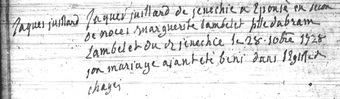 Jaques juillard Jaques juillard de jenechie a Epousé en secon
de noces marguerite Lambelet fille d'abram
Lambelet du jenechee le 28. 1728
son mariage aiant eté beni dans l'Eglise